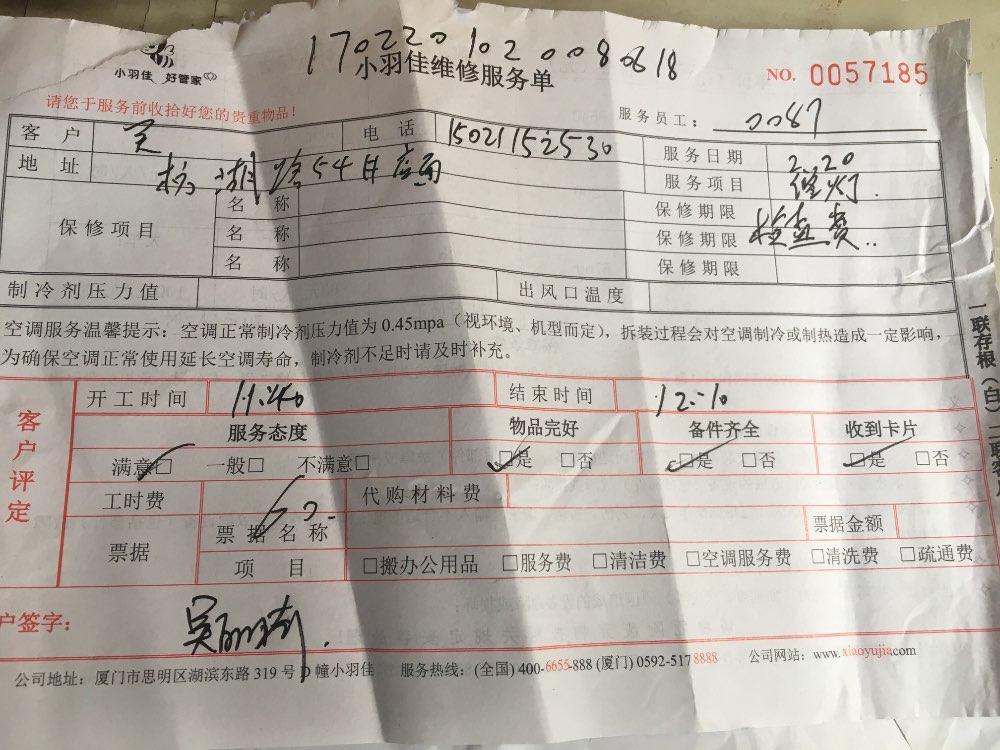 1702201020080618
小羽佳 好管家
小羽佳维修服务单
NO. 0057185
请您于服务前收拾好您的贵重物品!
服务员工: 0087
客户 吴 电话 15021152530 服务日期 2.20
地址 湖路54号店面 服务项目 修灯.
保修项目 名称 保修期限 检查费..
名称 保修期限
名称 保修期限
制冷剂压力值 出风口温度
空调服务温馨提示: 空调正常制冷剂压力值为 0.45mpa(视环境、机型而定), 拆装过程会对空调制冷或制热造成一定影响,
为确保空调正常使用延长空调寿命, 制冷剂不足时请及时补充。
客户评定
开工时间 11:40 结束时间 12:10
服务态度 物品完好 备件齐全 收到卡片
满意□ 一般□ 不满意□ □是 □否 □是 □否 □是 □否
工时费 50.- 代购材料费
票据 票据名称 票据金额
项目 □搬办公用品 □服务费 □清洁费 □空调服务费 □清洗费 □疏通费
户签字:
公司地址: 厦门市思明区湖滨东路 319 号 D 幢小羽佳 服务热线: (全国) 400-6655-888 (厦门) 0592-517 8888 公司网站: www.xiaoyujia.com
一联存根(白)二联客户